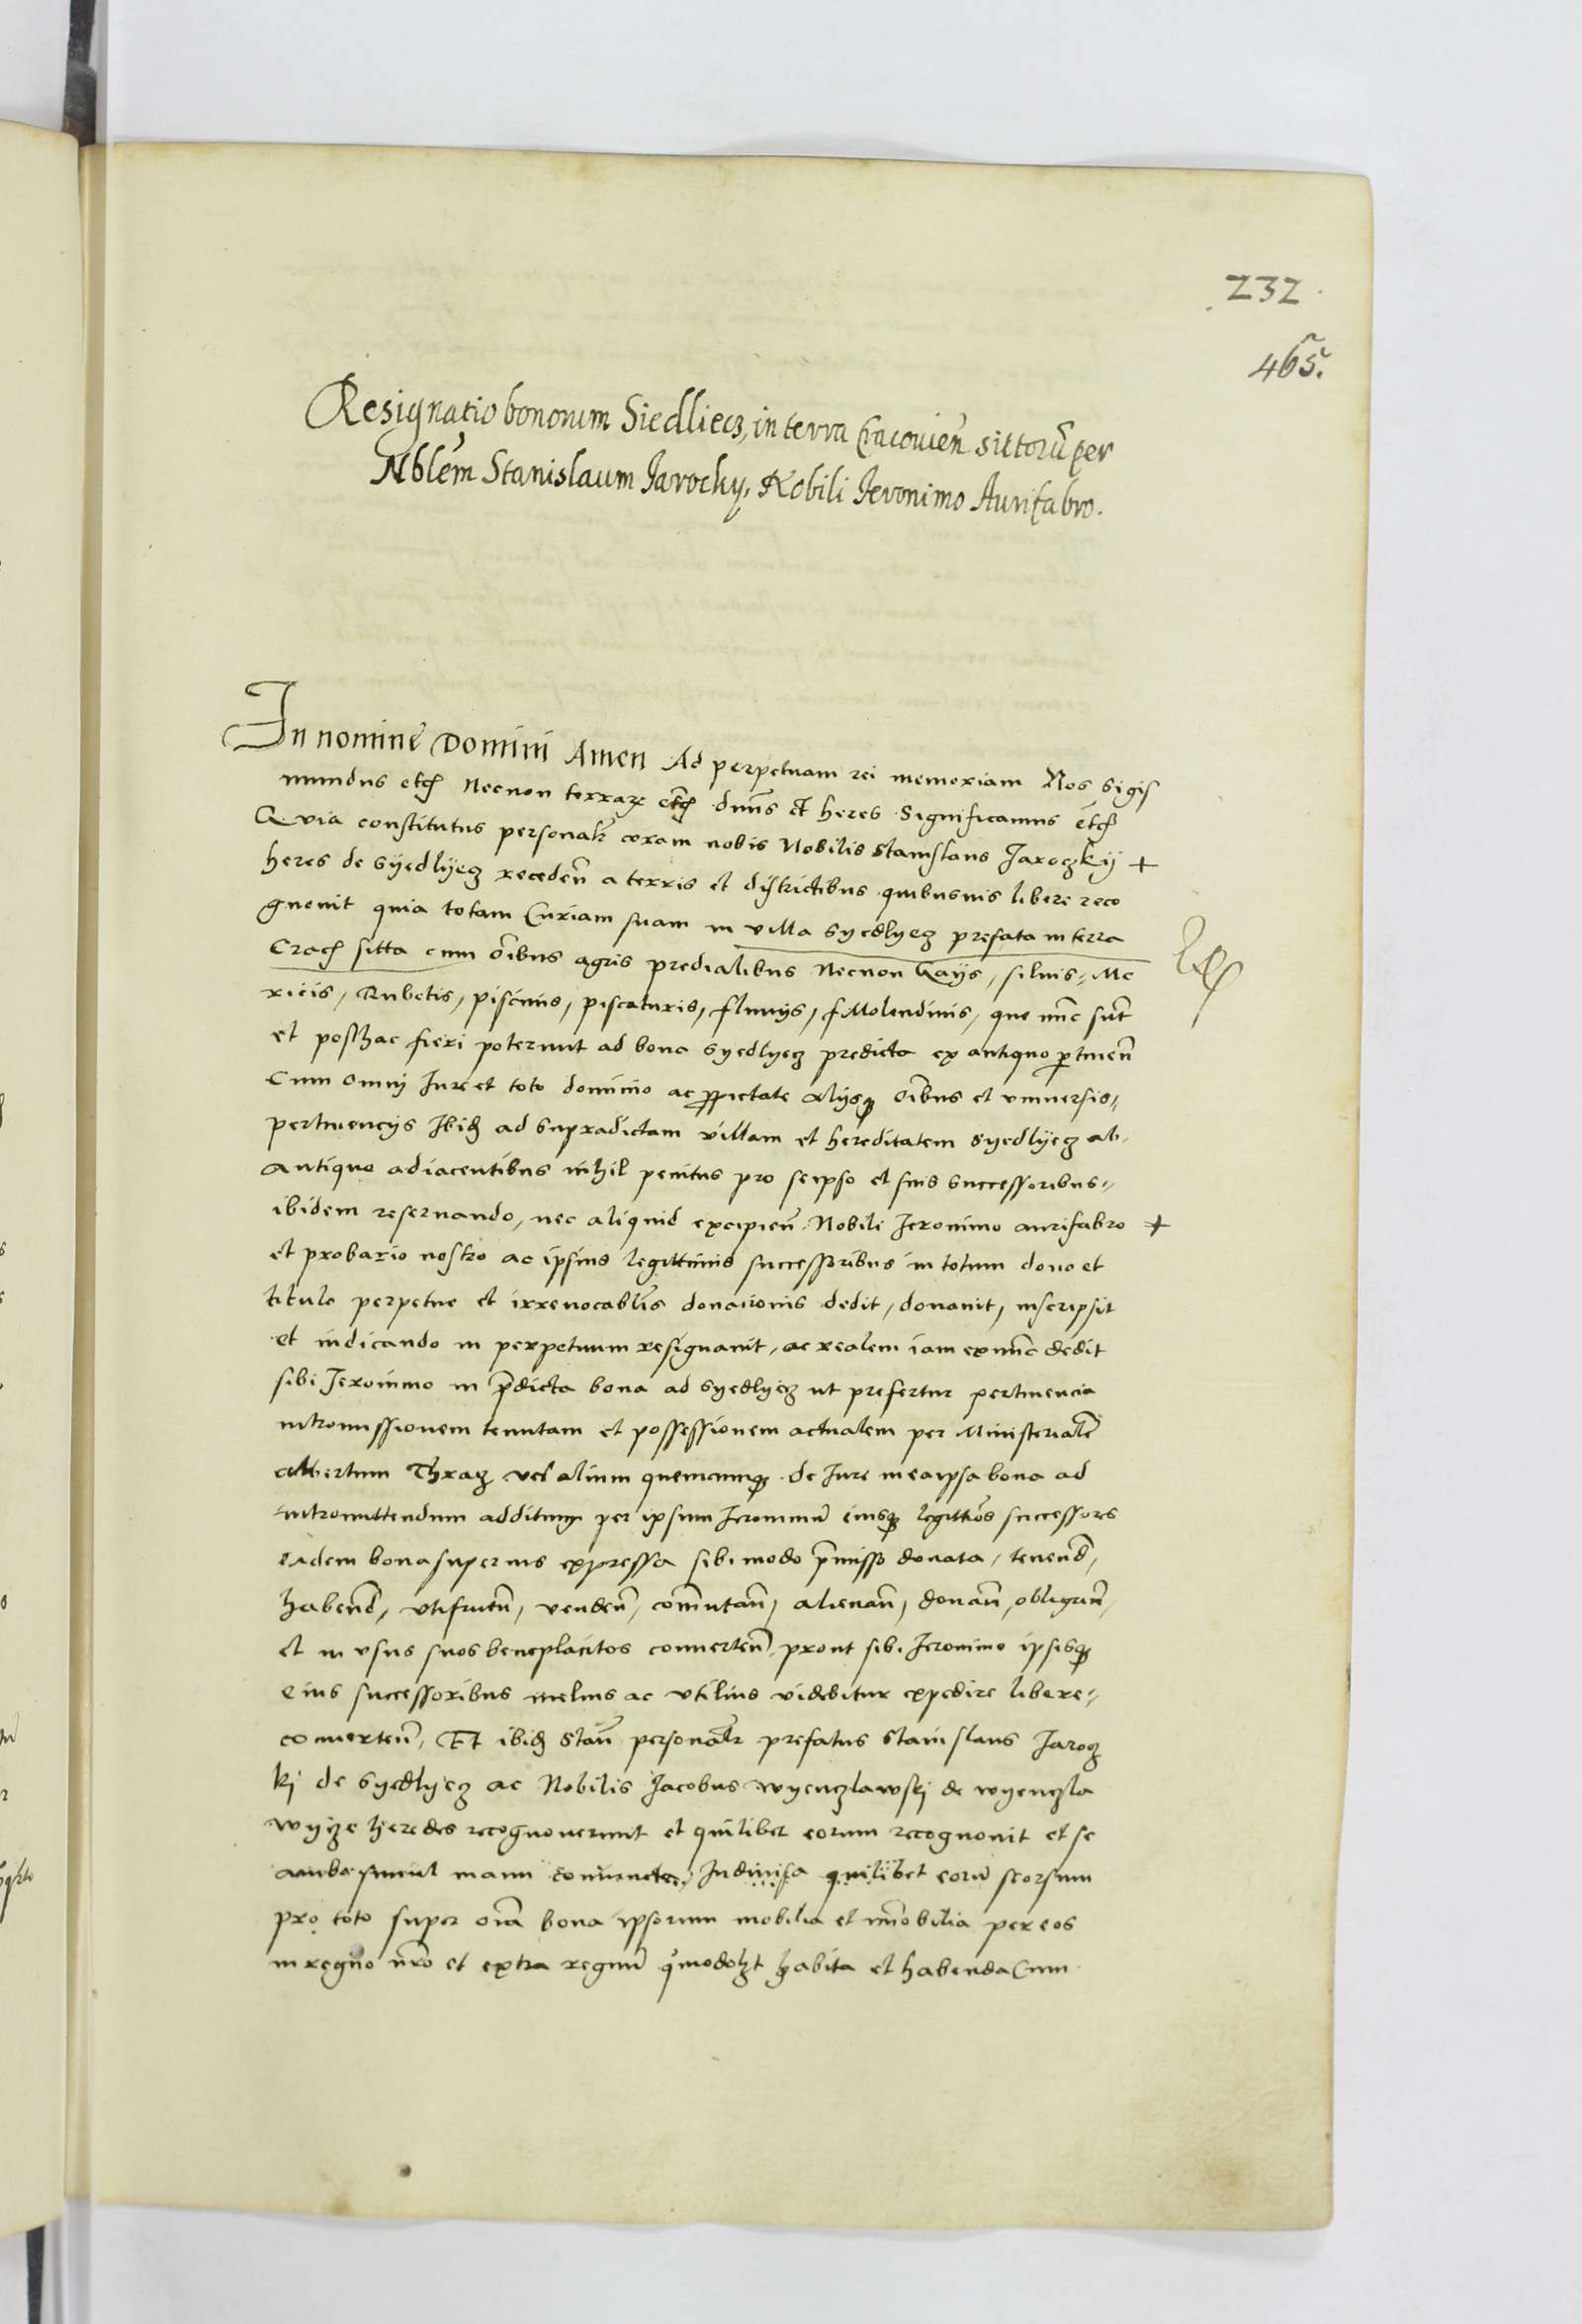 232.
465.
Resignatio bonorum Siedliecz, in terra Cracovien̄ sittorū per
Nblēm Stanislaum Jarocky, Nobili Jeronimo Aurifabro.
In nomine Domini Amen Ad perpetuam rei memoriam Nos Sigis
mundus etc̄ Necnon terrarꝝ etc̄ dnūs et heres Significamus etc̄
Quia constitutus personalr̄ coram nobis Nobilis Stanislaus Jaroczkÿ +
heres de Syedlÿecz receden̄ a terris et districtibus quibusuis libere reco
gnouit quia totam Curiam suam in villa Syedlyecz prefata in terra
Crac̄ sitta cum oībus agris predialibus Necnon Gaÿs, siluis, Me
ricis, Rubetis, piscinis, piscaturis, fluuÿs, Molendinis, que nūc sūt
et posthac fieri poterunt ad bona Syedlyecz predicta ex antiquo ꝑtinen̄
Cum omni Jure et toto dominio ac ꝓprietate alÿsqꝫ oībus et vniuersis
pertinencÿs Ibid̄ ad supradictam villam et hereditatem Syedlÿecz ab
antiquo adiacentibus nihil penitus pro seipso et suis successoribus
ibidem reseruando, nec aliquid excipien̄ Nobili Jeronimo aurifabro +
et probario nostro ac ipsius legittimis successoribus in totum dono et
titulo perpetue et irreuocabl̄is donacionis dedit, donauit, inscripsit
et indicando in perpetuum resignauit, ac realem iam exnūc dedit
sibi Jeronimo in p̄dicta bona ad Syedlyecz ut prefertur pertinencia
intromissionem tenutam et possessionem actualem per Ministerialē
Albertum Thracz vel alium quemcunqꝫ de Jure in ea ipsa bona ad
intromittendum additum per ipsum Jeronimū eiusqꝫ legittīos successores
eadem bona superius expressa sibi modo p̄misso donata, tenend̄,
habend̄, vtifruen̄, venden̄, com̄utan̄, alienan̄, donan̄, obligan̄,
et in vsus suos beneplacitos conuerten̄ prout sibi Jeronimo ipsisqꝫ
eius successoribus melius ac vtilius videbitur expedire libere
conuerten̄, Et ibid̄ stan̄ personalr̄ prefatus Stanislaus Jarocz
kj de Syedlyecz ac Nobilis Jacobus Wyenczlawskj de Wyenczla
wÿcze heredes recognouerunt et quilibet eorum recognouit et se
ambo simul manu coniuncta, Indiuisa quilibet eorū seorsum
pro toto super oīa bona ipsorum mobilia et im̄obilia per eos
in regno nr̄o et extra regnū quōmodolzt habita et habenda Cum